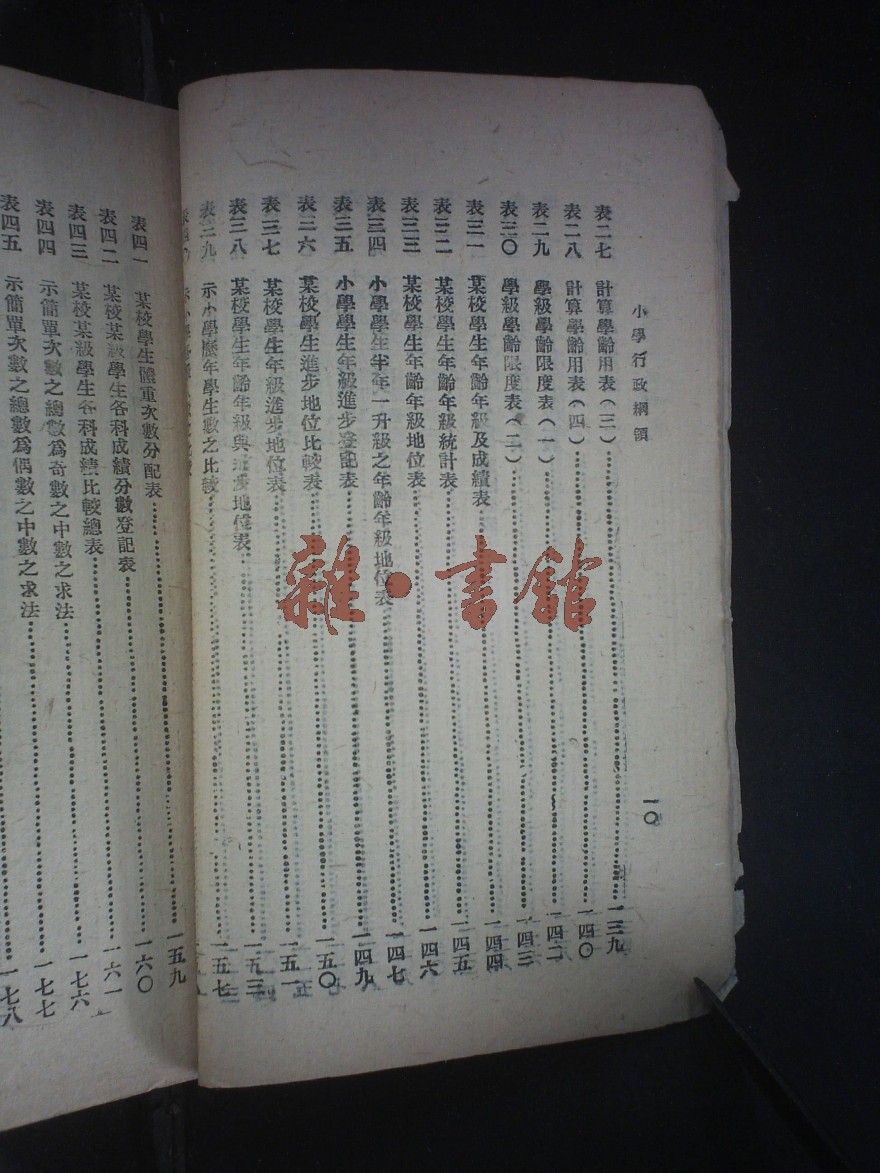 小學行政綱領
一〇
表二七 計算學齡用表(三)……一三九
表二八 計算學齡用表(四)……一四〇
表二九 學級學齡限度表(一)……一四二
表三〇 學級學齡限度表(二)……一四三
表三一 某校學生年齡年級及成績表……一四四
表三二 某校學生年齡年級統計表……一四五
表三三 某校學生年齡年級地位表……一四六
表三四 小學學生半年一升級之年齡年級地位表……一四七
表三五 小學學生年級進步登記表……一四九
表三六 某校學生進步地位比較表……一五〇
表三七 某校學生年級進步地位表……一五一
表三八 某校學生年齡年級與進步地位表……一五三
表三九 示小學歷年學生數之比較……一五七
一五九
表四一 某校學生體重次數分配表……一六〇
表四二 某校某級學生各科成績分數登記表……一六一
表四三 某校某級學生各科成績比較總表……一七六
表四四 示簡單次數之總數爲奇數之中數之求法……一七七
表四五 示簡單次數之總數爲偶數之中數之求法……一七八
雜·書館